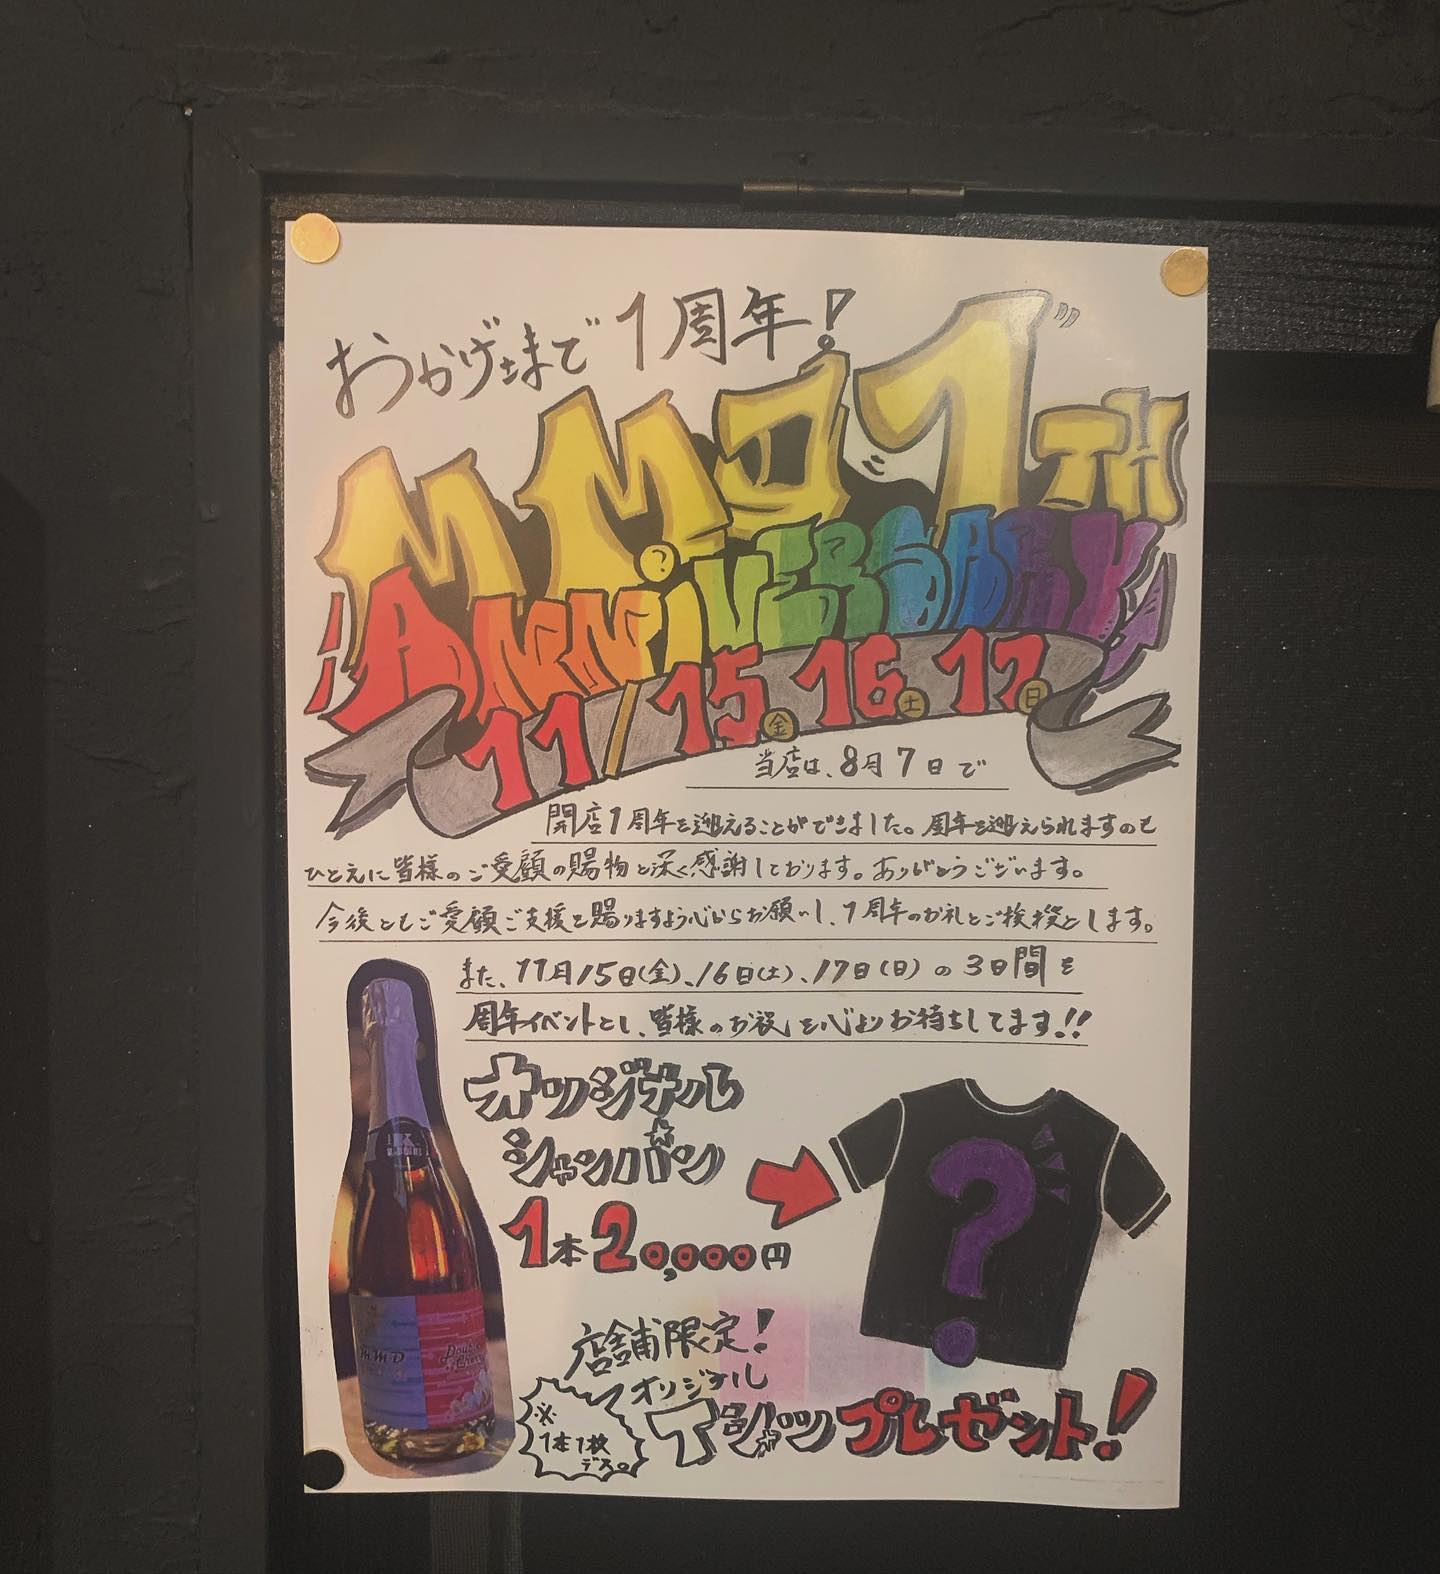 おかげさまで1周年!
MMD 1TH
ANNiVERSARY
11/15金 16土 17日
当店は、8月7日で
開店1周年を迎えることができました。周年を迎えられますのも
ひとえに皆様のご愛顧の賜物と深く感謝しております。ありがとうございます。
今後ともご愛顧ご支援を賜りますよう心からお願いし、1周年のお礼とご挨拶とします。
また、11月15日(金)、16日(土)、17日(日)の3日間を
周年イベントとし、皆様のお祝いを心よりお待ちしてます!!
オリジナル
シャンパン
1本20,000円
?
MMD
Double
店舗限定!
オリジナル
Tシャツプレゼント!
※
1本1枚
デス。